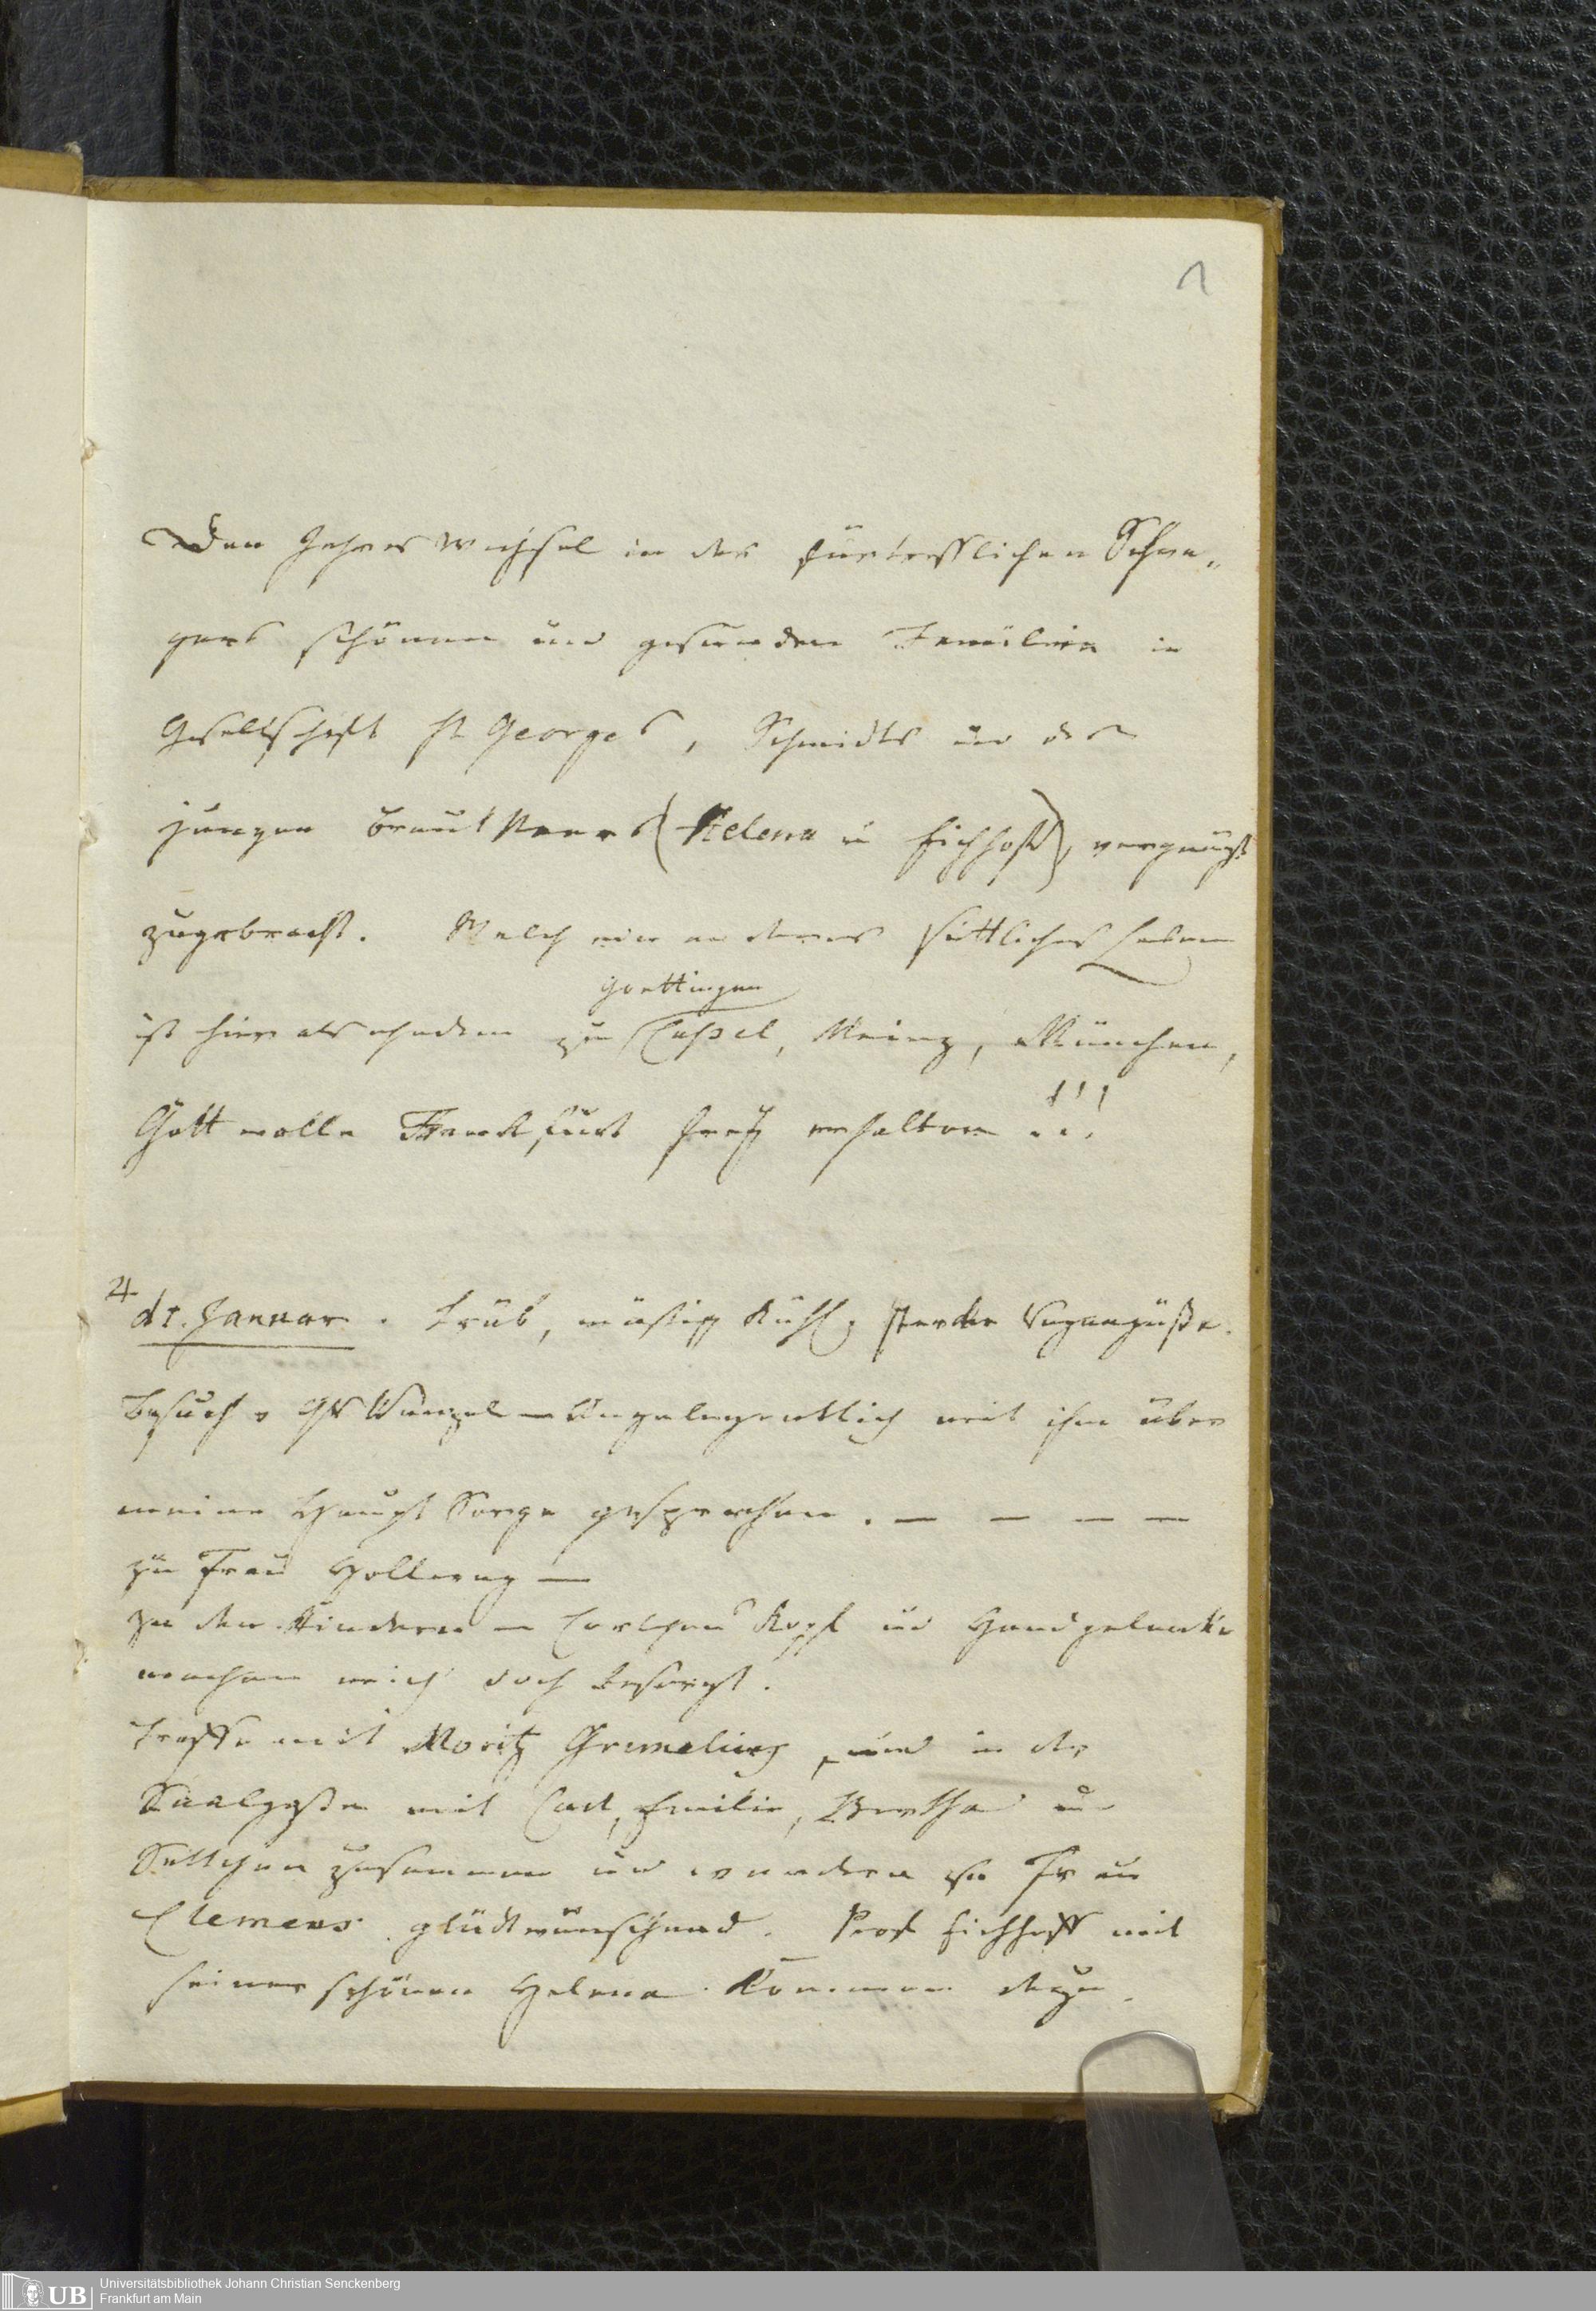 1
Den Jahres Wechsel in der fürtrefflichen Schwa„
gers schönen und gesunden Familien in
Gesellschaft St Georges, Schmidts und des
jungen Braut Paars (Helena u Eichhoff), vergnügt
zugebracht. Welch ein anderes sittliches Leben
Goettingen
ist hier als ehedem zu Cassel, Mainz, München,
!!!
Gott wolle Franckfurt frey erhalten ...
♃
d 1. Januar. Trüb, mäßig kühl, starke Regengüße.
Besuch v Wenzel – Angelegentlich mit ihm über
meine Haupt Sorge gesprochen. — — — —
zu Frau Hollweg —
zu den Kindern – Carlchens Kopf und Handgelenke
machen mich doch besorgt.
treffe mit Moritz Grunelius, und in der
Saalgaße mit Carl, Emilie, Bertha und
Settchen zusammen und wandern zu Frau
Clemens glückwünschend. Prof Eichhoff mit
seiner schönen Helena kommen dazu.
UB Universitätsbibliothek Johann Christian Senckenberg
Frankfurt am Main